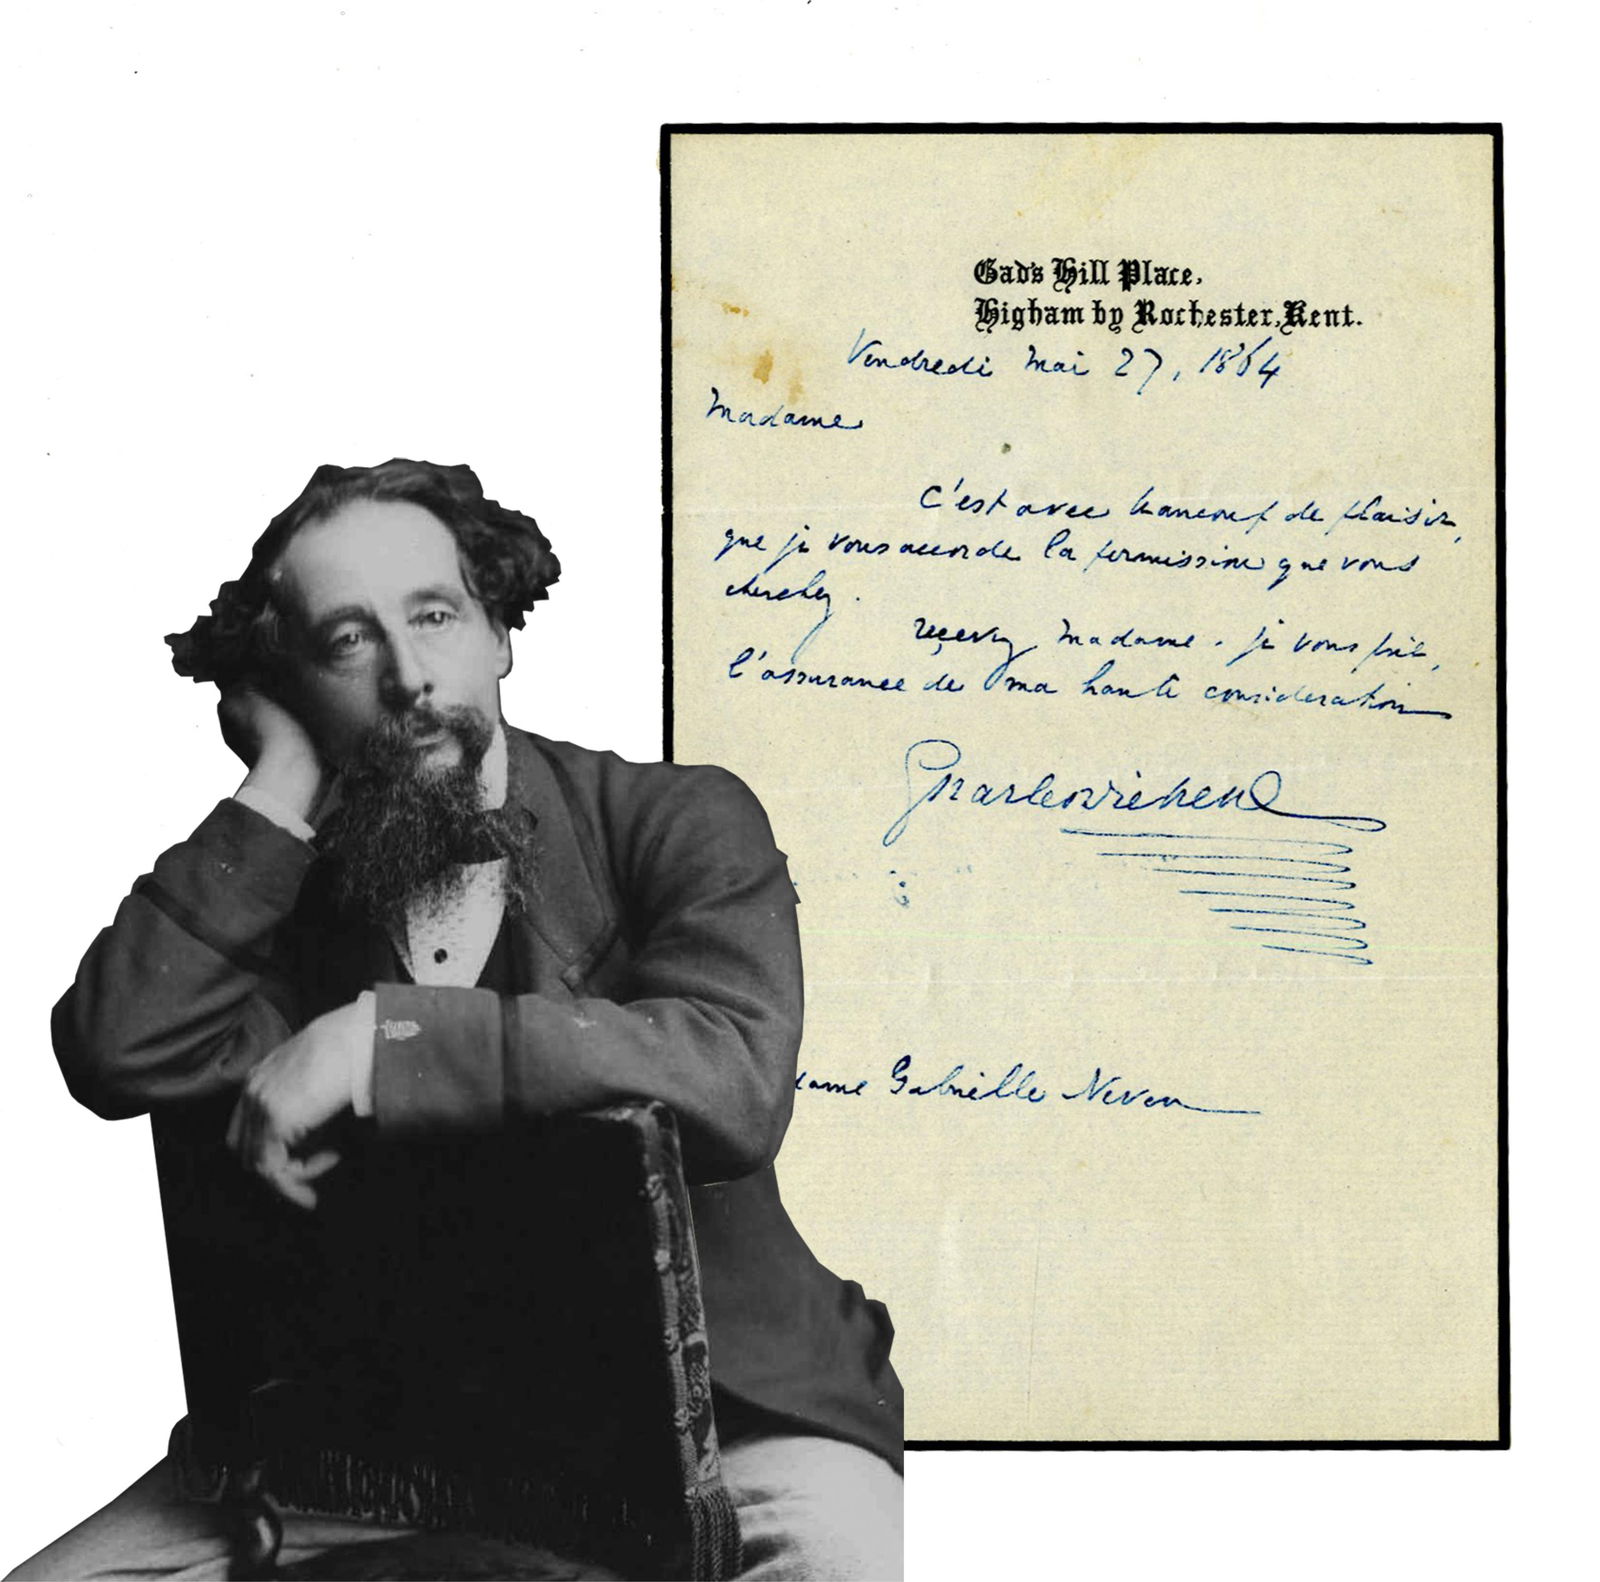 Gad's Hill Place,
Higham by Rochester, Kent.
Vendredi Mai 27, 1864
Madame
C'est avec beaucoup de plaisir,
que je vous accorde la permission que vous
cherchez.
reçevez Madame, je vous prie,
l'assurance de ma haute consideration
Charles Dickens
dame Gabrielle Neven